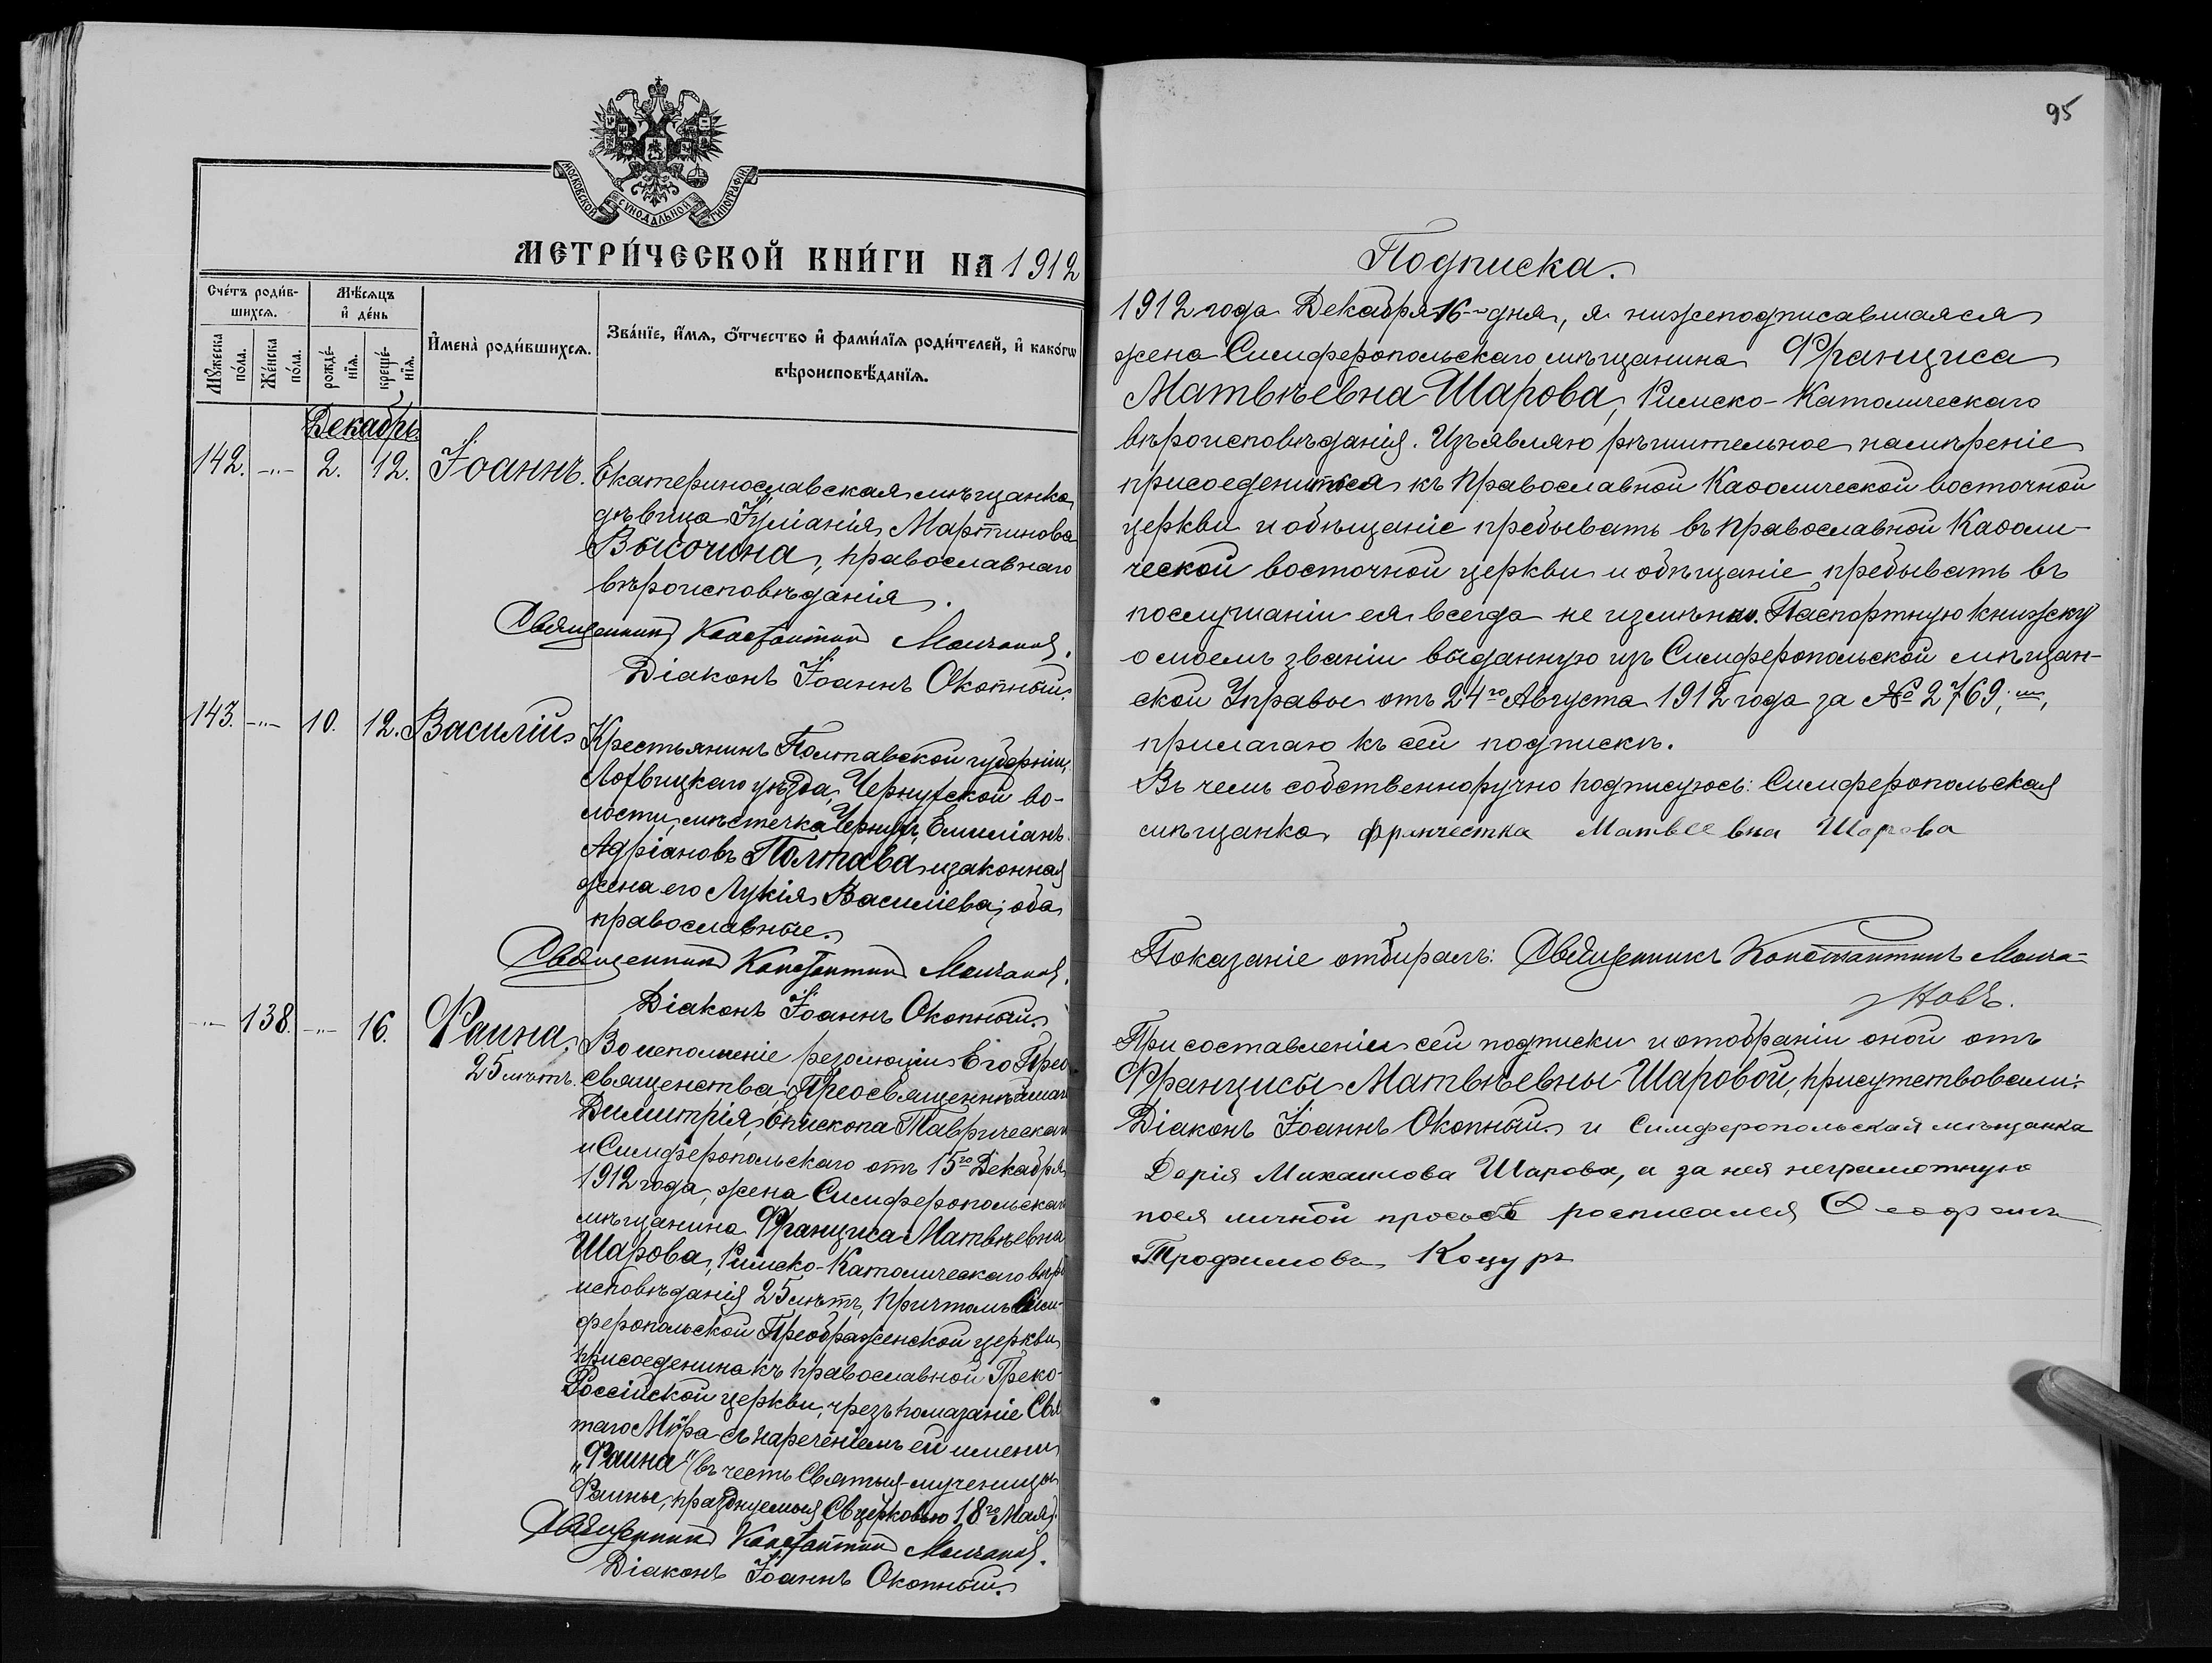 МОСКОВСКОЙ СѴНОДАЛЬНОЙ ТИПОГРАФІИ
МЕТРИ́ЧЕСКОЙ КНИ́ГИ НА 1912
Сче́тъ роди́в-
шихсѧ.
Мѣ́сѧцъ
и҆ де́нь
И҆мена̀ роди́вшихсѧ.
Зва́нїе, и҆́мѧ, ѻ҆́тчество и҆ фами́лїѧ роди́телей, и҆ како́гѡ
вѣроисповѣ́данїѧ.
Мꙋ́жеска
по́ла.
Же́нска
по́ла.
рожде́-
нїѧ.
креще́-
нїѧ.
Декабрь.
142. -"- 2. 12. Іоаннъ. Екатеринославская мѣщанка,
дѣвица Іуліанія Мартинова
Височина, православнаго
вѣроисповѣданія.
Священникъ Константинъ Молчановъ.
Діаконъ Іоаннъ Окопный.
143. -"- 10. 12. Василій Крестьянинъ Полтавской губерніи,
Лохвицкаго уѣзда, Чернухской во-
лости, мѣстечка Чернухъ, Емиліанъ
Адріановъ Полтава и законная
жена его Лукія Василіева; оба
православные.
Священникъ Константинъ Молчановъ.
Діаконъ Іоаннъ Окопный.
-"- 138. -"- 16. Фаина. Во исполненіе резолюціи Его Прео-
25 лѣтъ. священства, Преосвященнѣйшаго
Димитрія, Епископа Таврическаго
и Симферопольскаго отъ 15го Декабря
1912 года, жена Симферопольскаго
мѣщанина Франциса Матвѣевна
Шарова, Римско-Католическаго вѣро
исповѣданія 25 лѣтъ, причтомъ Сим-
феропольской Преображенской церкви
присоеденина къ православной Греко-
Россійской церкви, чрезъ помазаніе Свя
таго Мѵра съ нареченіемъ ей имени
„Фаина" (въ честь Святыя мученицы
Фаины, празднуемыя Св церковью 18го Мая).
Священникъ Константинъ Молчановъ.
Діаконъ Іоаннъ Окопный.
95
Подписка.
1912 года Декабря 16-" дня, я нижеподписавшаяся
жена Симферопольскаго мѣщанина Франциса
Матвѣевна Шарова, Римско-Католическаго
вѣроисповѣданія. Изъявляю рѣшительное намѣреніе
присоедениться къ православной Каѳолической восточной
церкви и обѣщаніе пребывать въ православной Каѳоли-
ческой восточной церкви и обѣщаніе пребывать въ
послушаніи ея всегда не измѣнно. Паспортную книжку
о моемъ званіи выданную изъ Симферопольской мѣщан-
ской Управы отъ 24го Августа 1912 года за № 2769,
прилагаю къ сей подпискѣ.
Въ чемъ собственноручно подписуюсь: Симферопольская
мѣщанка Франчестка Матвеевна Шарова
Показаніе отбиралъ: Священникъ Константинъ Молча-
новъ.
При составленіи сей подписки и отобраніи оной отъ
Францисы Матвѣевны Шаровой, присутствовали:
Діаконъ Іоаннъ Окопный и Симферопольская мѣщанка
Дарія Михаилова Шарова, а за нея неграмотную
поея личной просьбе росписался Феофанъ
Трофимовъ Коцуръ